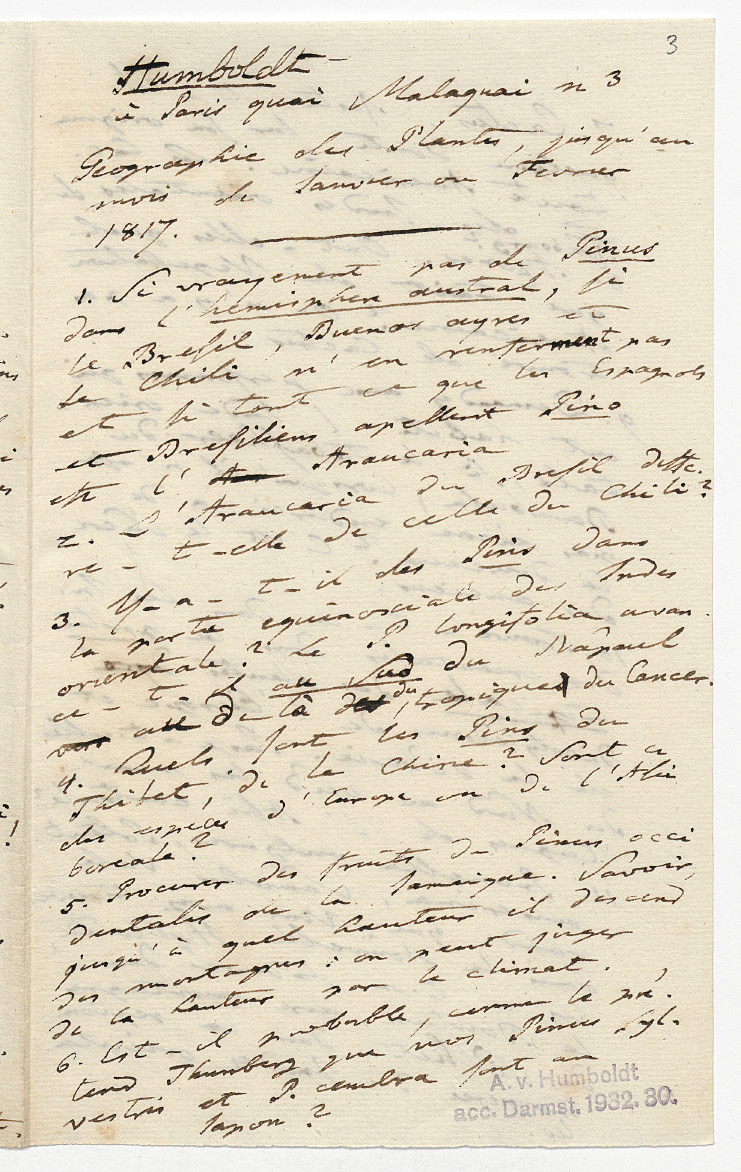 3
Humboldt
à Paris quai Malaquai n 3
Geographie des Plantes, jusqu'au
mois de Janvier ou Fevrier
1817.
1. Si vrayement pas de Pinus
dans l'hemisphere austral, si
le Bresil, Buenos ayres et
le Chili n'en renferment pas
et si tout ce que les Espagnols
et Bresiliens apellent Pino
est l' Araucaria
2. L'Araucaria du Bresil diffe-
re-t-elle de celle du Chili?
3. Y-a-t-il des Pins dans
la partie equinoxiale des Indes
orientale? Le P. longifolia avan-
ce-t-il au Sud du Napaul
au de là du tropique du Cancer.
4. Quels sont les Pins du
Thibet, de la Chine? Sont ce
des especes d'Europe ou de l'Asie
boreale?
5. Procurer des fruits du Pinus occi
dentalis de la Jamaique. Savoir,
jusqu'à quel hauteur il descend
des montagnes: on peut juger
de la hauteur par le climat.
6. Est-il probable, comme le pré-
tend Thunberg que nos Pinus syl-
vestris et P. cembra sont au
Japon?
A. v. Humboldt
acc. Darmst. 1932. 30.